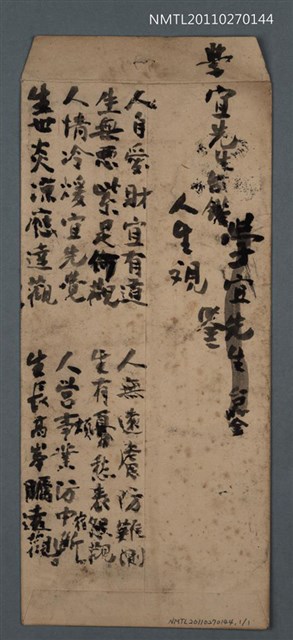 NMTL20110270144
學宜先生台鑑
學宜先生
鑒
人生觀
人自愛財宜有道
生無思樂是何觀
人情冷煖宜先覺
生世炎涼應達觀
人無遠慮防難測
生有憂愁表怨觀
人營事業防中斷
生長高峯矚遠觀
NMTL20110270144, 1/1